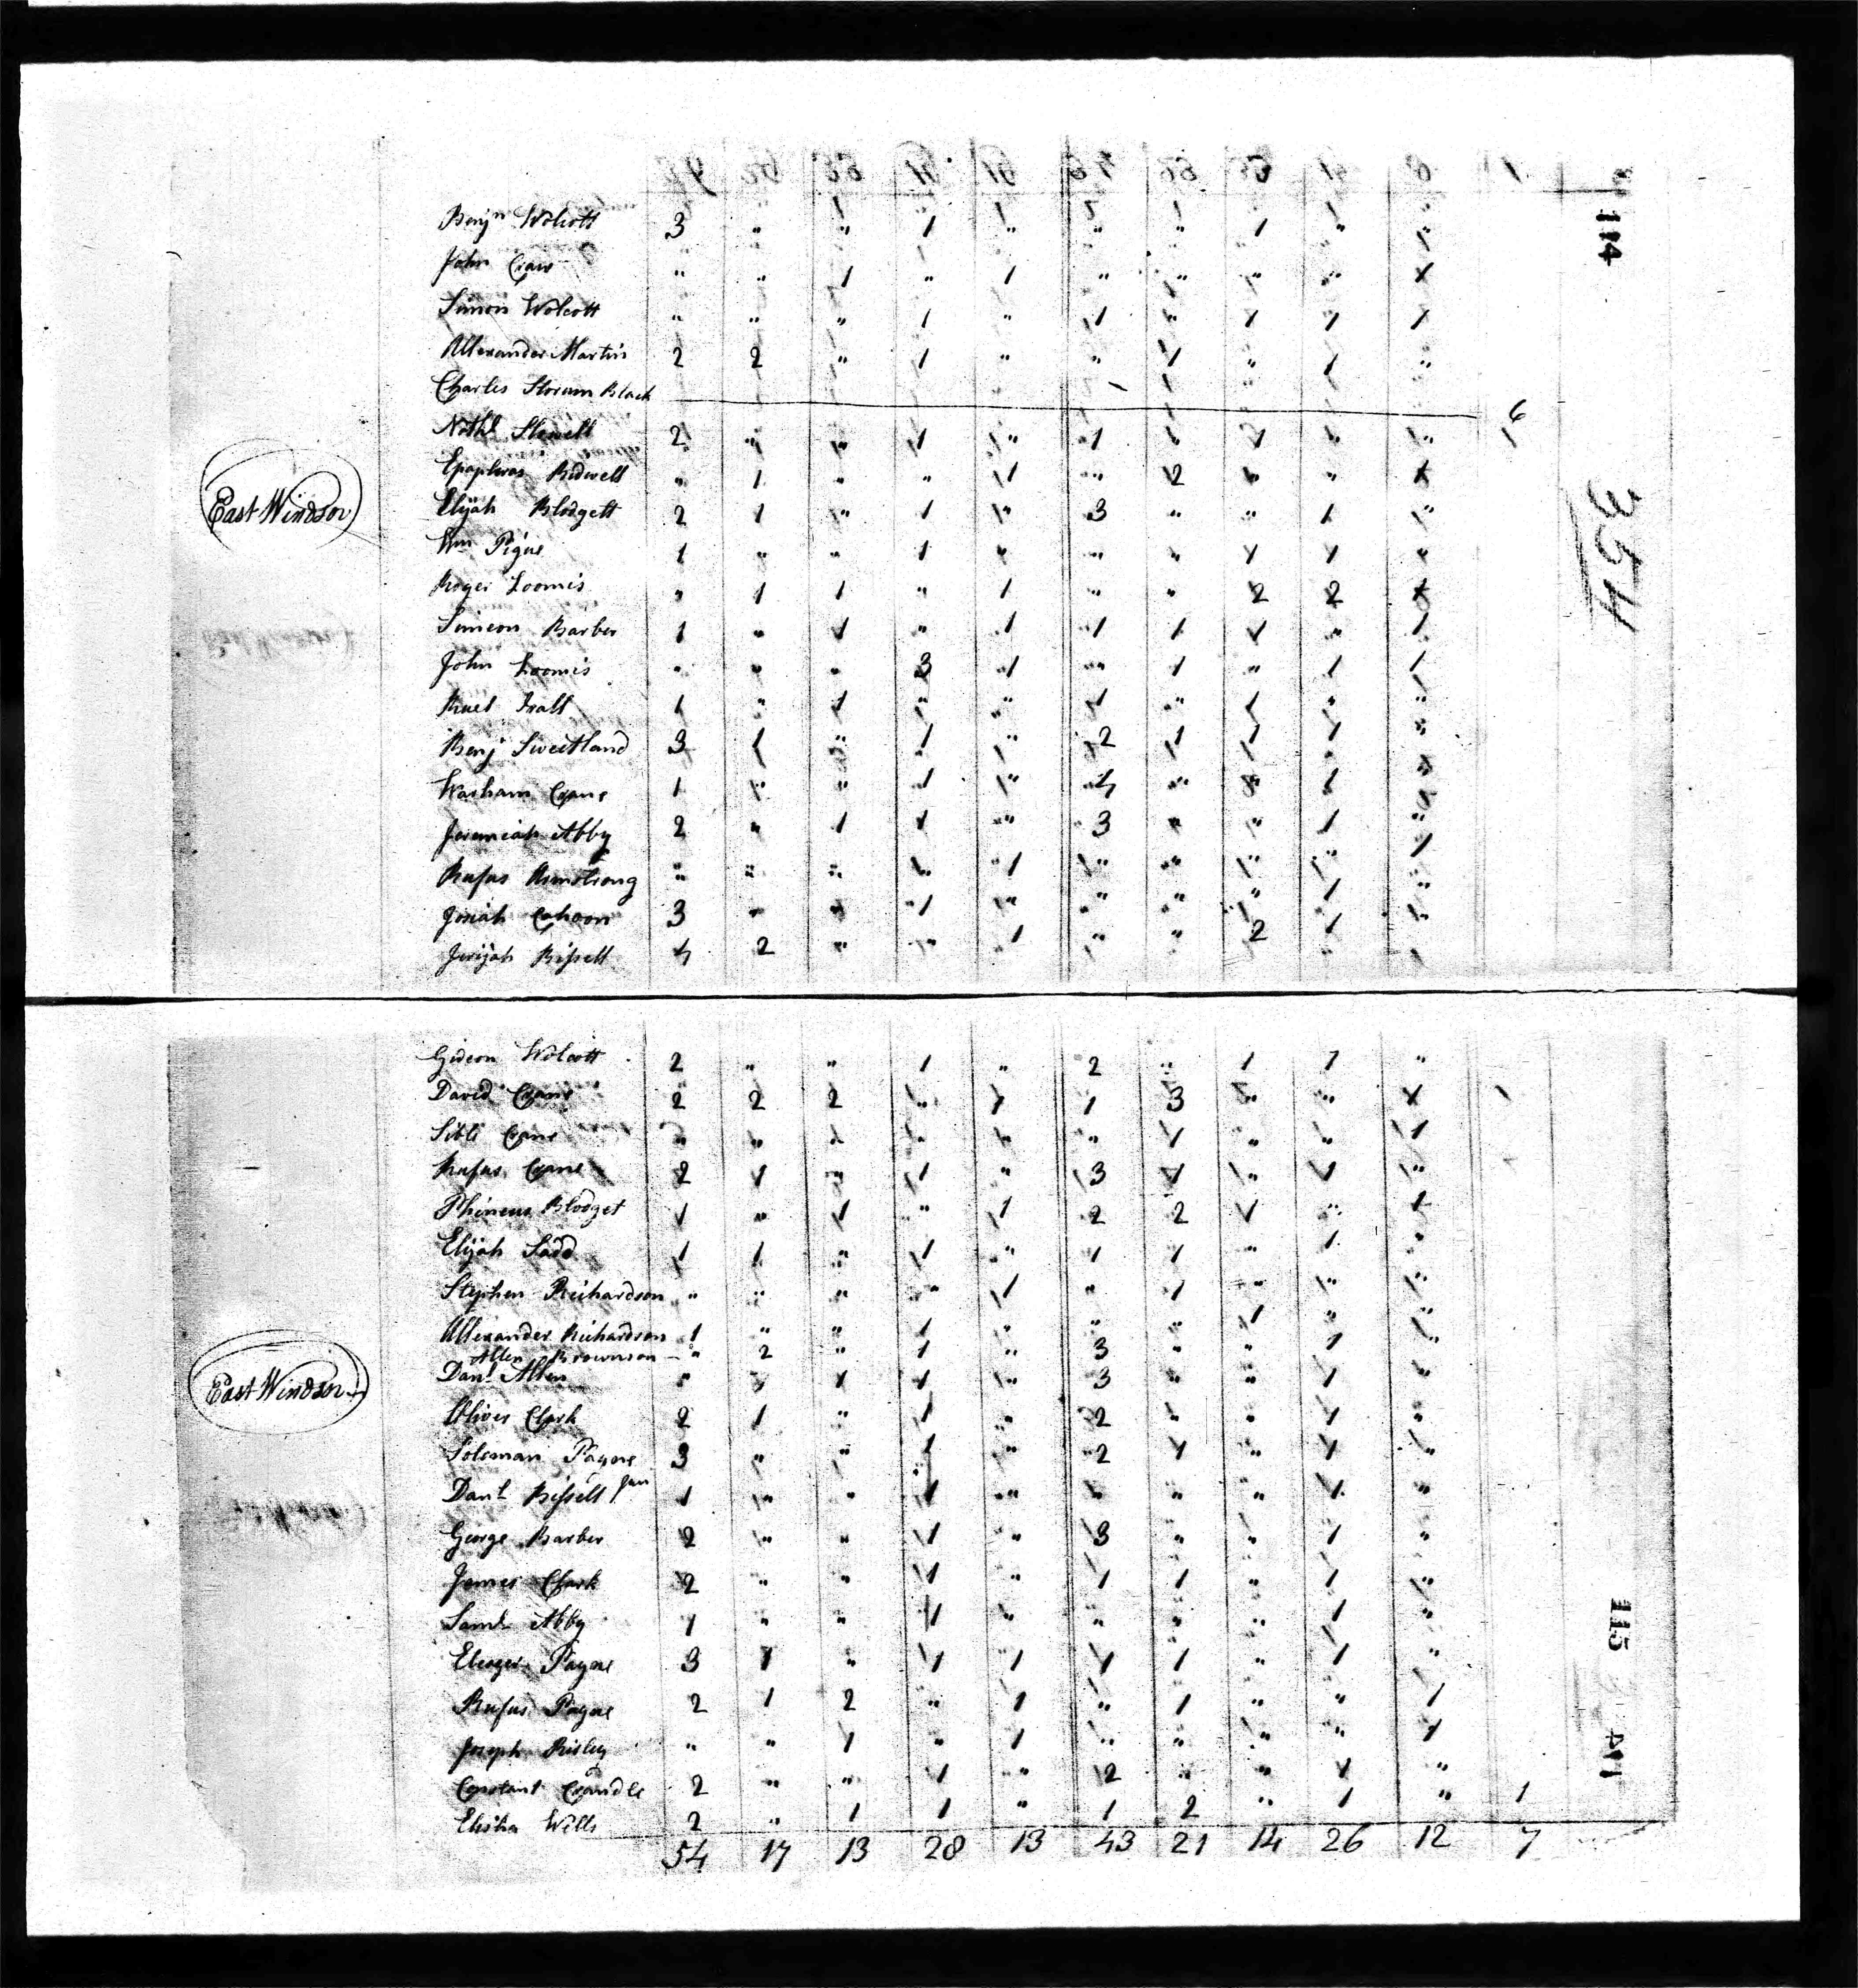 114
Benjn Wolcott 3 " " 1 " " " 1 " "
John Craw " " 1 " 1 " " " " 1
Simon Wolcott " " " 1 " 1 " 1 1 1
Allexander Martin 2 2 " 1 " " 1 " 1 "
Charles Storum Black 6
Nathl Stowell 2 " " 1 " 1 " 1 " "
Epaphras Bidwell " 1 " " 1 " 2 " " 1
Elijah Blodgett 2 1 " 1 " 3 " " 1 "
East Windsor
354
Wm Pigne 1 " " 1 " " " 1 1 "
Roger Loomis " 1 1 " 1 " " 2 2 1
Simeon Barber 1 " 1 " 1 1 1 1 " 1
John Loomis " " " 3 1 " 1 " 1 1
1 " 1 " " 1 " 1 " "
Benj Sweetland 3 1 " 1 " 2 1 1 1 "
Warham Crane 1 " " 1 " 4 " " 1 "
Jeremiah Abby 2 " 1 1 " 3 " " 1 "
Rufus Armstrong " " " " 1 " " " " 1
Josiah Cahoon 3 " " 1 " " " " 1 "
Jerijah Bissell 4 2 " " 1 " " 2 1 "
Gideon Wolcott 2 " " 1 " 2 " 1 1 "
David Crane 2 2 2 " 1 1 3 " " 1
Crane " " " " " " 1 " " 1
Rufus Crane 2 1 " 1 " 3 1 " 1 "
Phineus Blodget 1 " 1 " 1 2 2 1 " 1
Elijah Sadd 1 1 " 1 " 1 1 " 1 "
Stephen Richardson " " " " 1 " 1 " " "
Allexander Richardson 1 " " 1 " " " 1 " "
Allen Brownson " 2 " 1 " 3 " " 1 "
Danl Allen " 1 1 1 " 3 " " 1 "
East Windsor
Oliver Clark 2 1 " 1 " 2 " " 1 "
Soloman Payne 3 " " 1 " 2 1 " 1 "
Danl Bissell Jun 1 " " 1 " " " " 1 "
George Barber 2 " " 1 " 3 " " 1 "
James Clark 2 " " 1 " 1 1 " 1 "
Saml Abby 1 " " 1 " " " " 1 "
115
Eleazer Payne 3 1 " 1 1 1 1 " 1 "
Rufus Payne 2 1 2 " 1 " 1 " " 1
Joseph Risley " " 1 " 1 " " " " 1
114
Constant Crandle 2 " " 1 " 2 " " 1 "
Elisha Wills 2 " 1 1 " 1 2 " 1 " 1
54 17 13 28 13 43 21 14 26 12 7